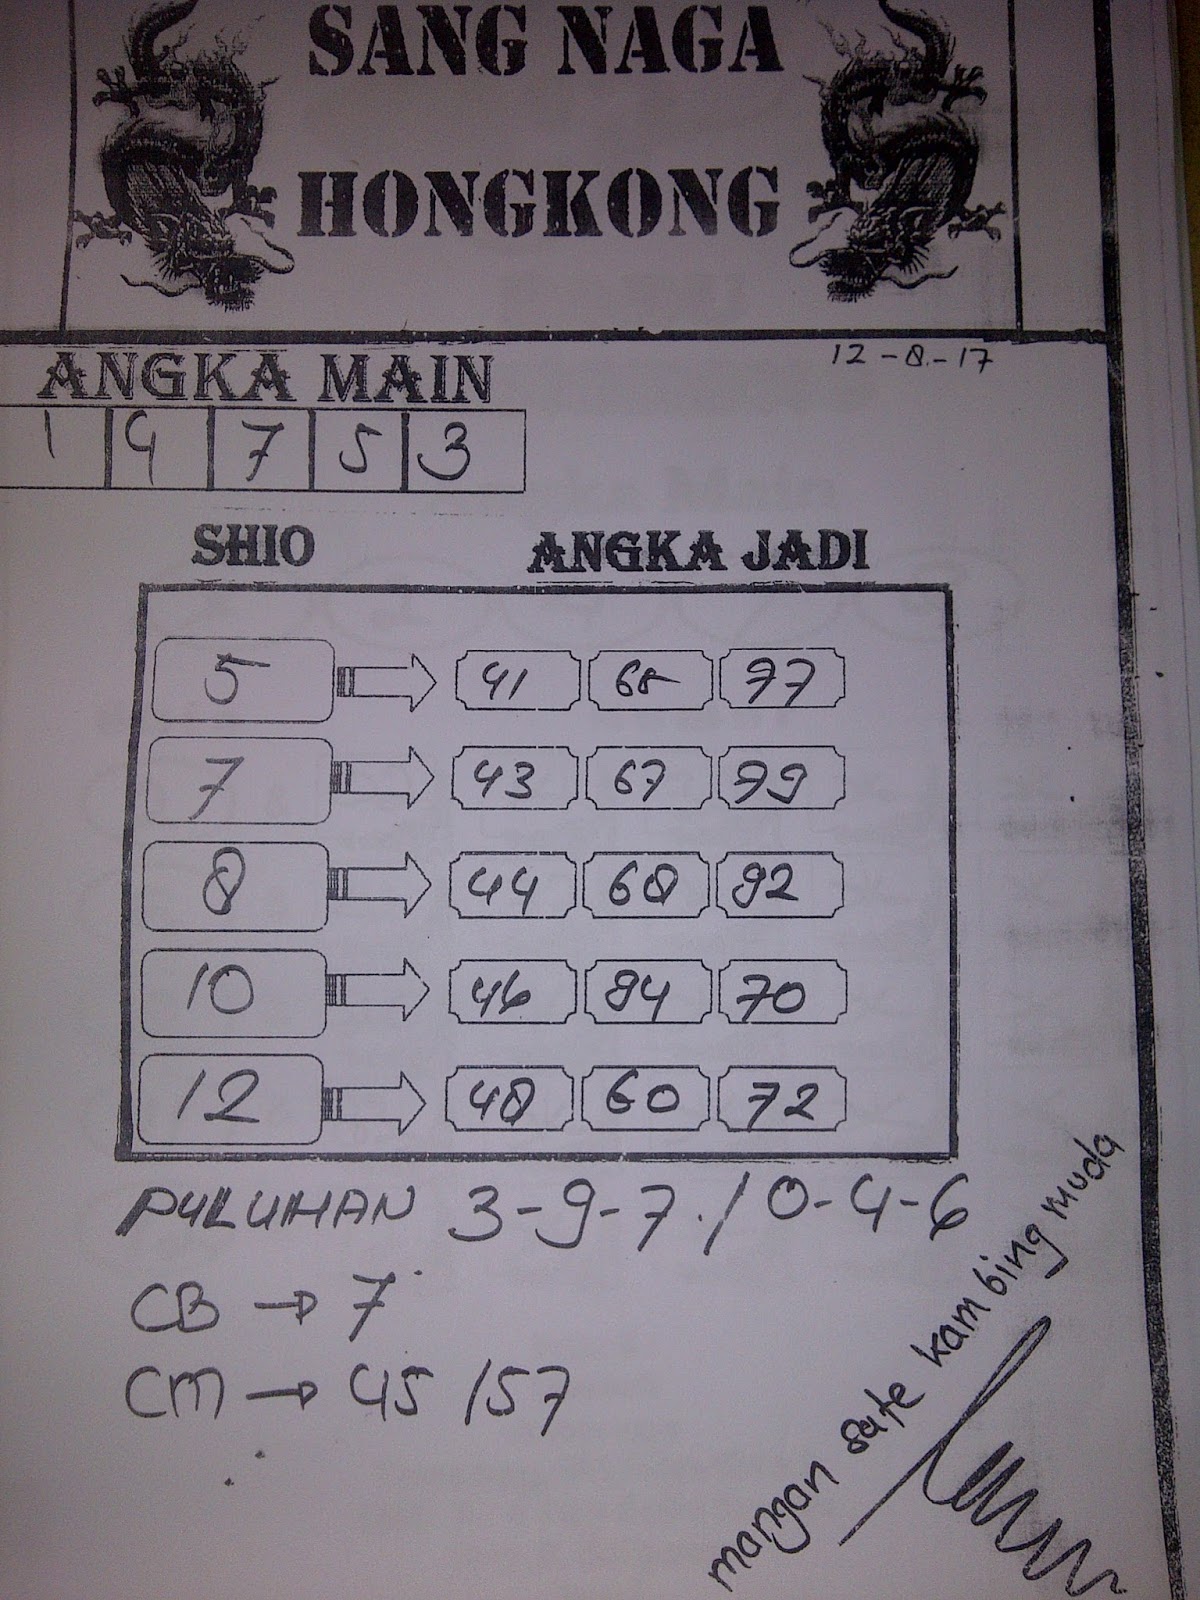 SANG NAGA
HONGKONG
12-8-17
ANGKA MAIN
1 9 7 5 3
SHIO ANGKA JADI
5 41 65 77
7 43 67 79
8 44 68 92
10 46 94 70
12 48 60 72
PULUHAN 3-9-7 / 0-4-6
CB → 7
CM → 45 / 57
mangan sate kambing muda